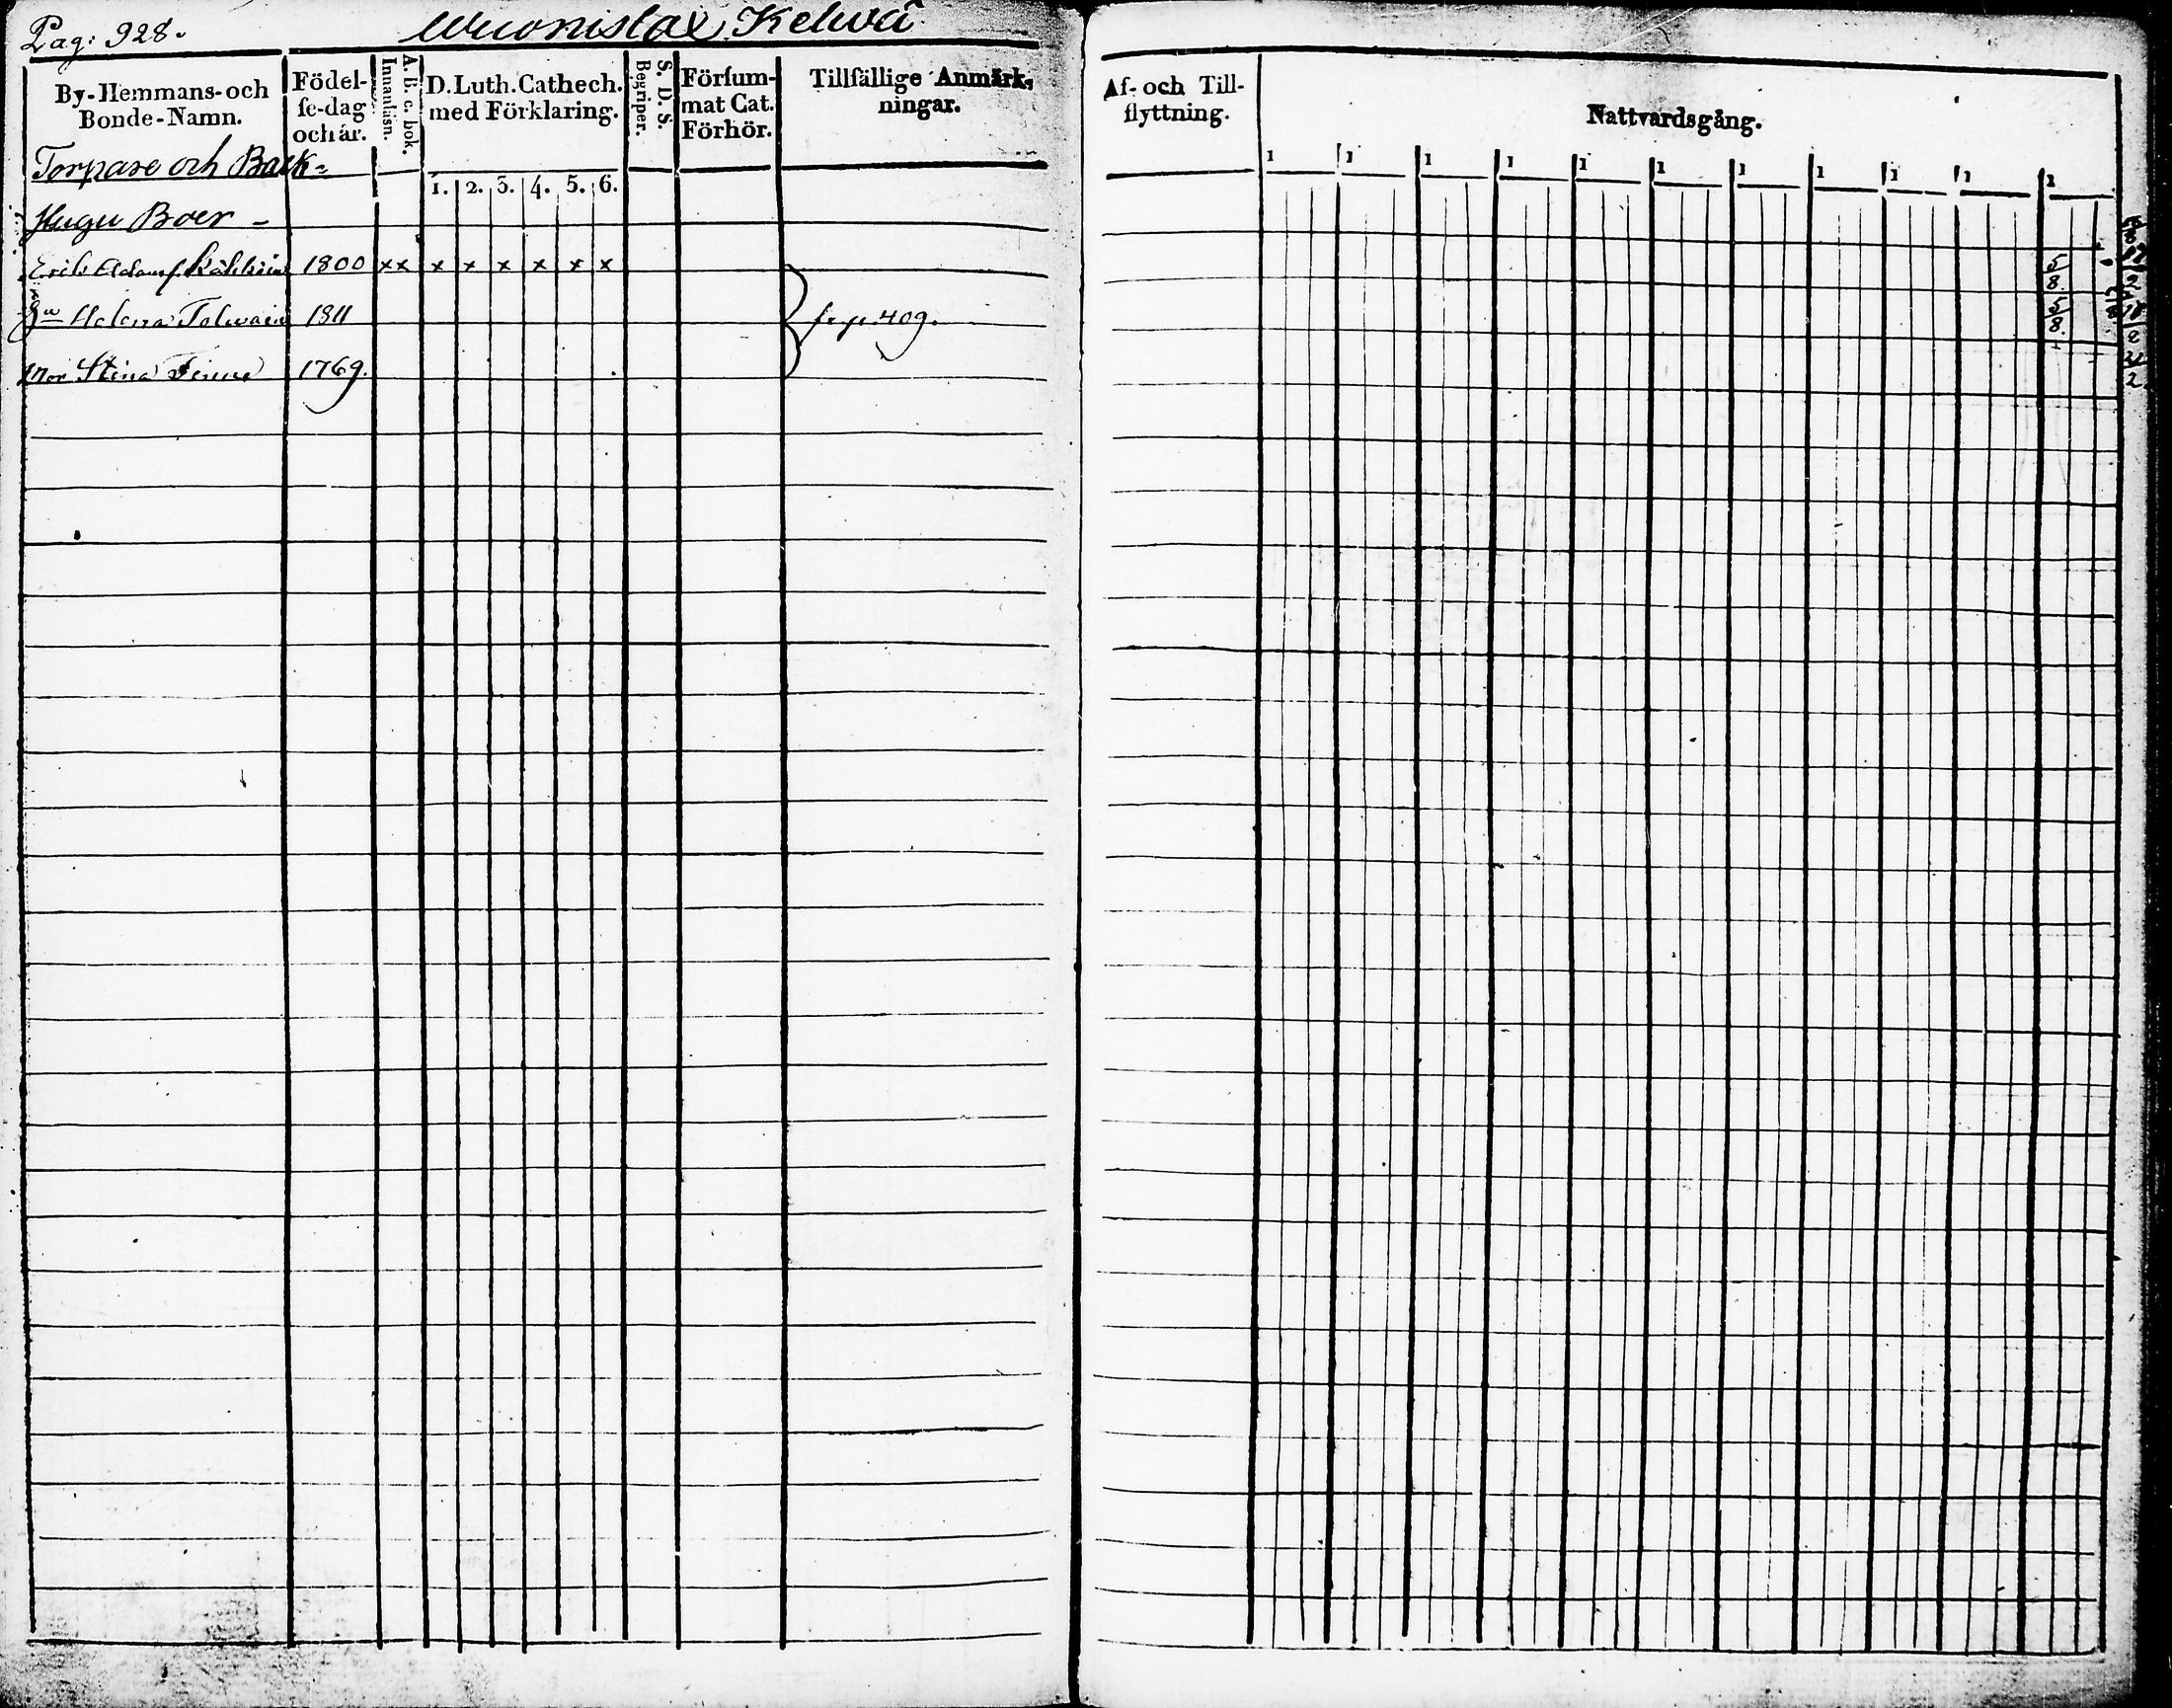 Pag: 928.
Wuonislax Kelwä
By-Hemmans-och Bonde-Namn.
Födel-se-dag och år.
Innanläsn.
A. B. c. bok.
D. Luth. Cathech. med Förklaring.
1. 2. 3. 4. 5. 6.
S. D. S. Begriper.
Försum-mat Cat. Förhör.
Tillfällige Anmärk-ningar.
Af- och Till-flyttning.
Nattvardsgång.
1 1 1 1 1 1 1 1 1 1 1
Torpare och Back-
Hugu Boer -
Erik Adamss. 1800 x x x x x x x x
Helena 1811 fr. p. 409.
Mor Stina 1769.
5/8.
5/8.